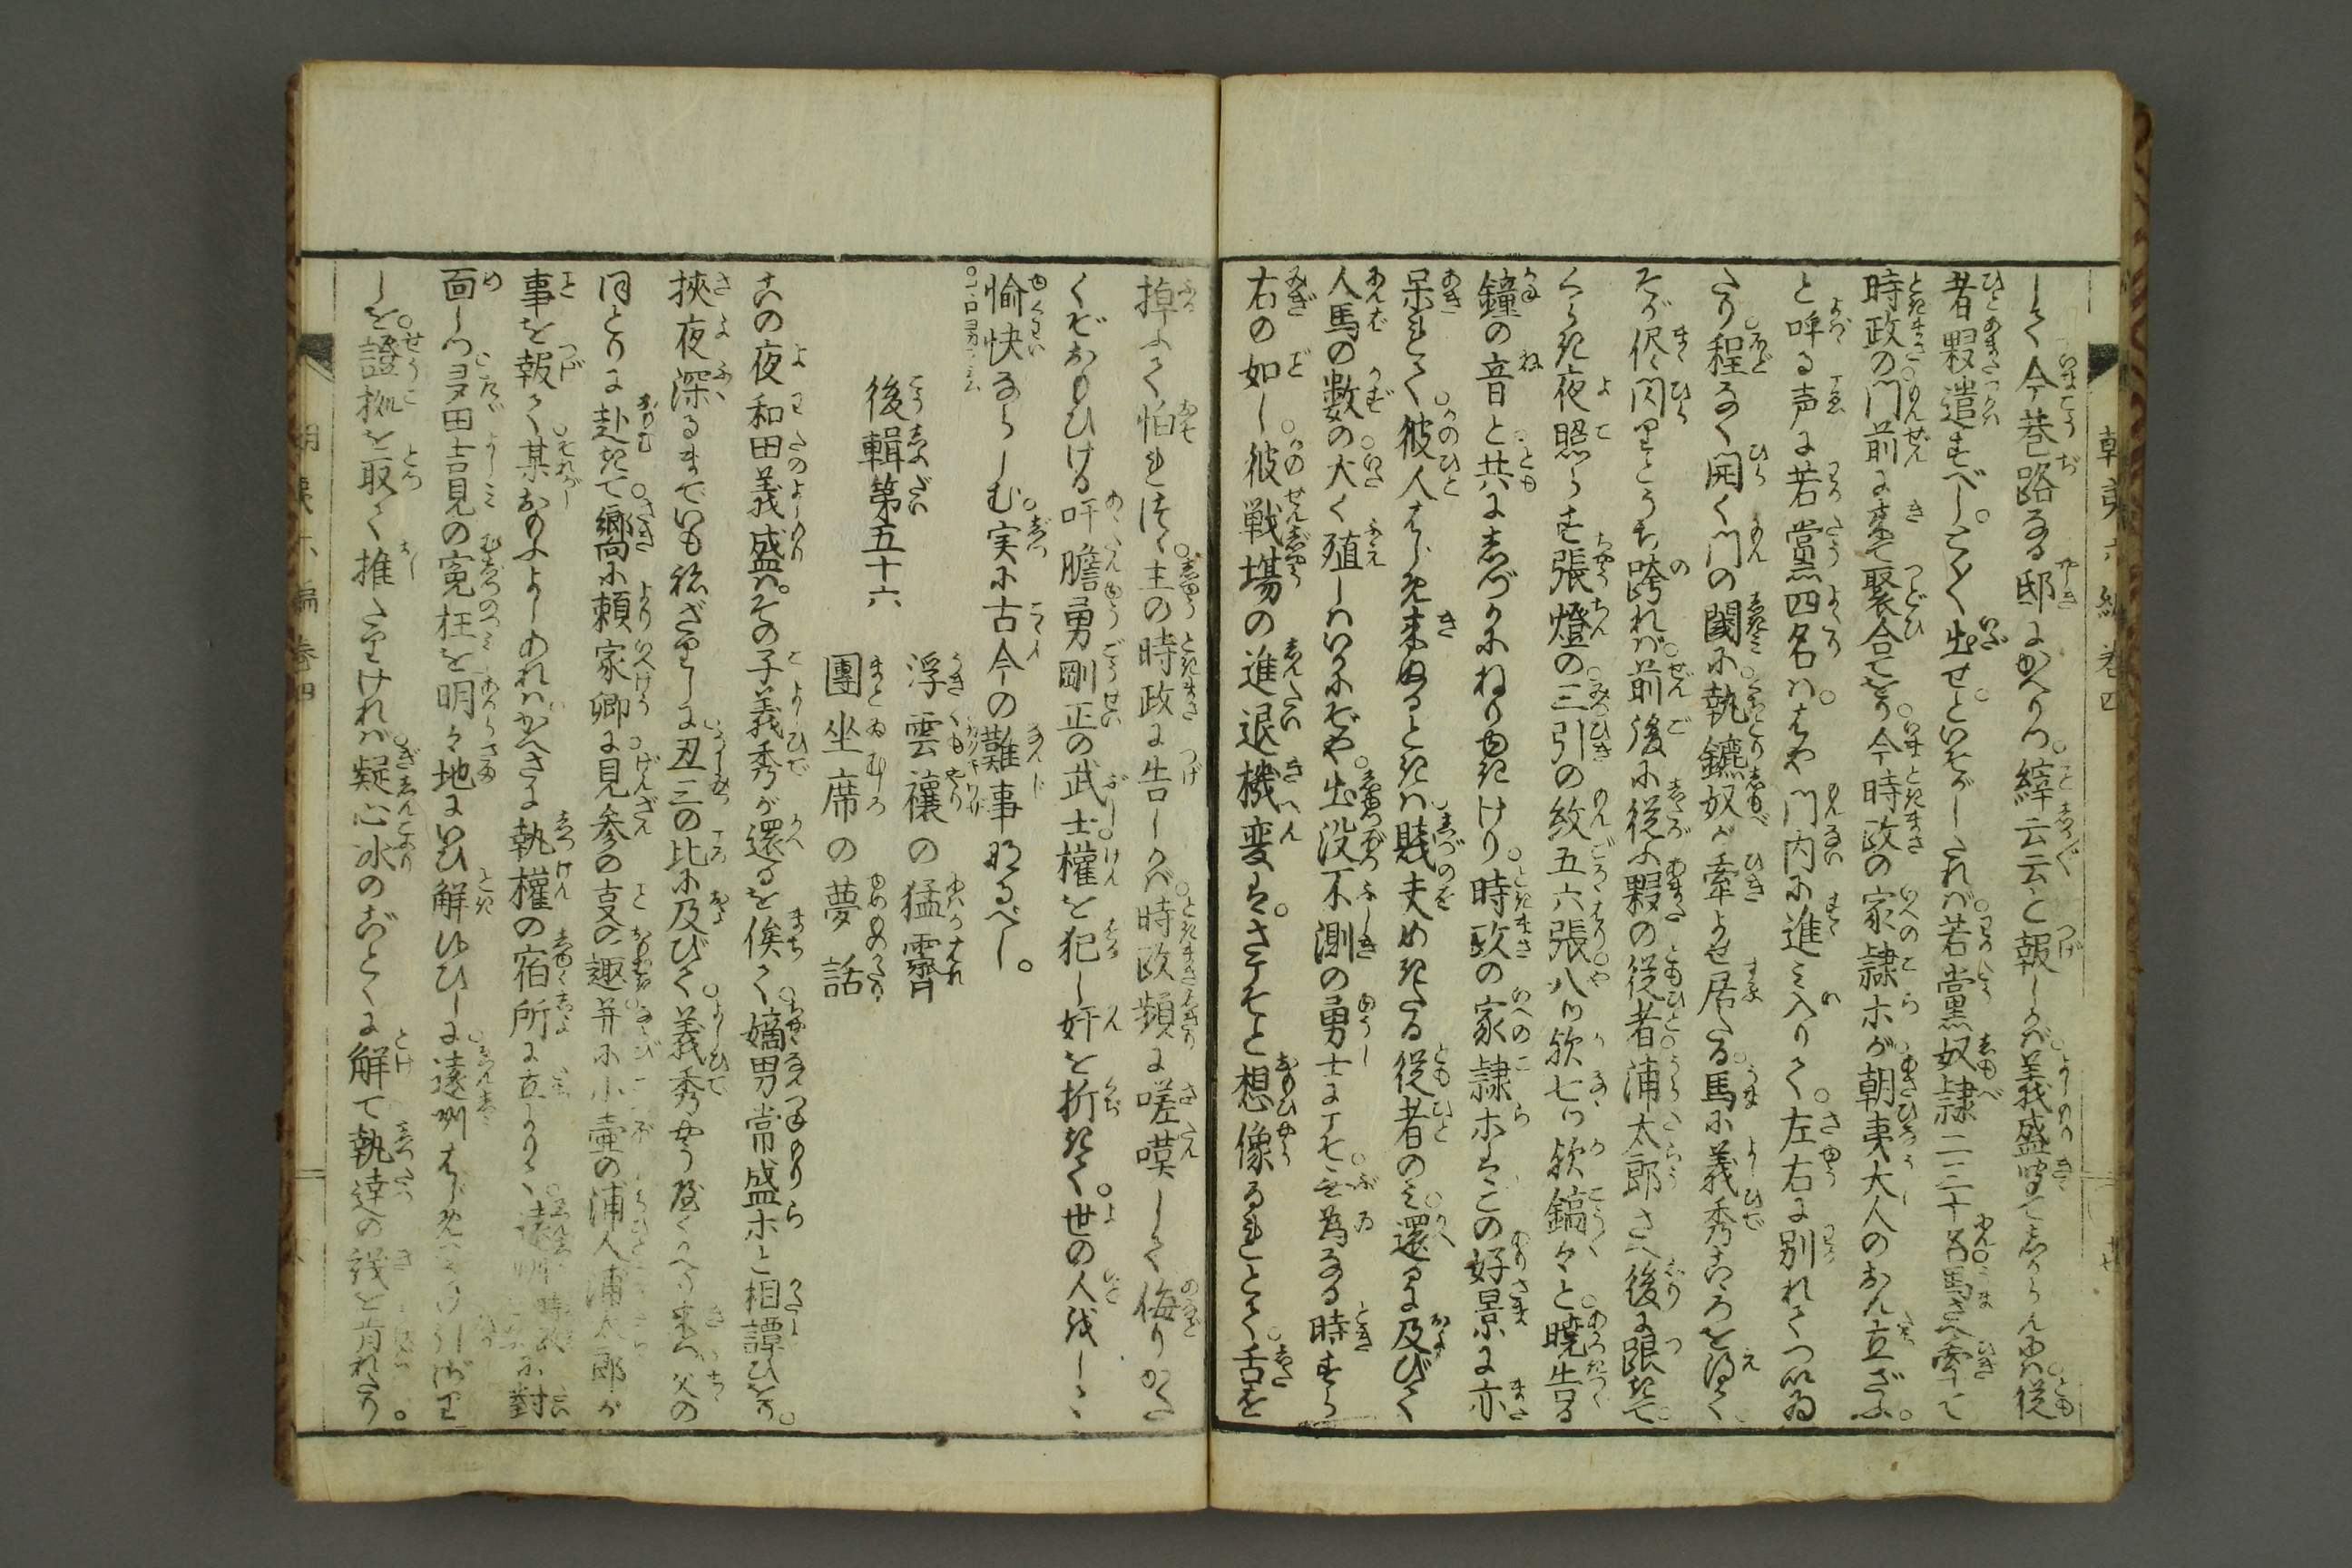 朝夷六編巻四
して今巷路なる邸にかへりつ。縡云云と報しかば。義盛聞てしからんには。従
者夥遣すべし。とく〳〵出せ。といそがしたれば。若黨奴隷二三十名。馬さへ牽て
時政の門前に来て聚合てをり。今時政の家隷ホが。朝夷大人のおん立ざふ。
と呼る声に若黨四名は。はや門内に進み入りて。左右に別れてつい居
たり。程なく開く門の閾に。執鑣奴が牽よせ居たる。馬に義秀こゝろを得て
そが侭閃りとうち跨れば。前後に従ふ夥の従者。浦太郎さへ後に跟きて。
くらき夜照らす張燈の。三引の紋五六張。八ツ欤七ツ欤鎬々と。曉告る
鐘の音と。共にしづかにねりゆきけり。時政の家隷ホはこの好景に亦
呆れて。彼人はじめ来ぬるときは。賎夫めきたる従者のみ。還るに及びて
人馬の數の。大く殖しはいかにぞや。出没不測の勇士にして。無為なる時すら
右の如し。彼戦塲の進退機変は。さこそと想像るれとて。舌を
掉ふて怕れつゝ。主の時政に告しかば。時政頻に嗟嘆して。侮りがた
くぞおもひける。吁膽勇剛正の武士。權を犯し奸を折きて。世の人我しゝ
愉快ならしむ。実に古今の難事なるべし。
後輯第五十六
浮雲禳の猛霽
團坐席の夢話
この夜和田義盛は。その子義秀が還るを俟て。嫡男常盛ホと相譚ひをり。
挾夜深るまでいも祢ざりしに。丑三の比に及びて。義秀やう屋くかへり来つ。父の
ほとりに赴きて。嚮に頼家卿に見参の。事の趣并に小壷の浦人浦太郎が
事を報て。某おもふよしあれば。かへさに執權の宿所に立よりて。遠州時政に對
面しつ。多田吉見の寃枉を。明々地にいひ解ひしに。遠州はじめは
しを。證拠を取て推たりければ。疑心氷のごとくに解て。執達の義を肯れたり。
朝夷六編巻四